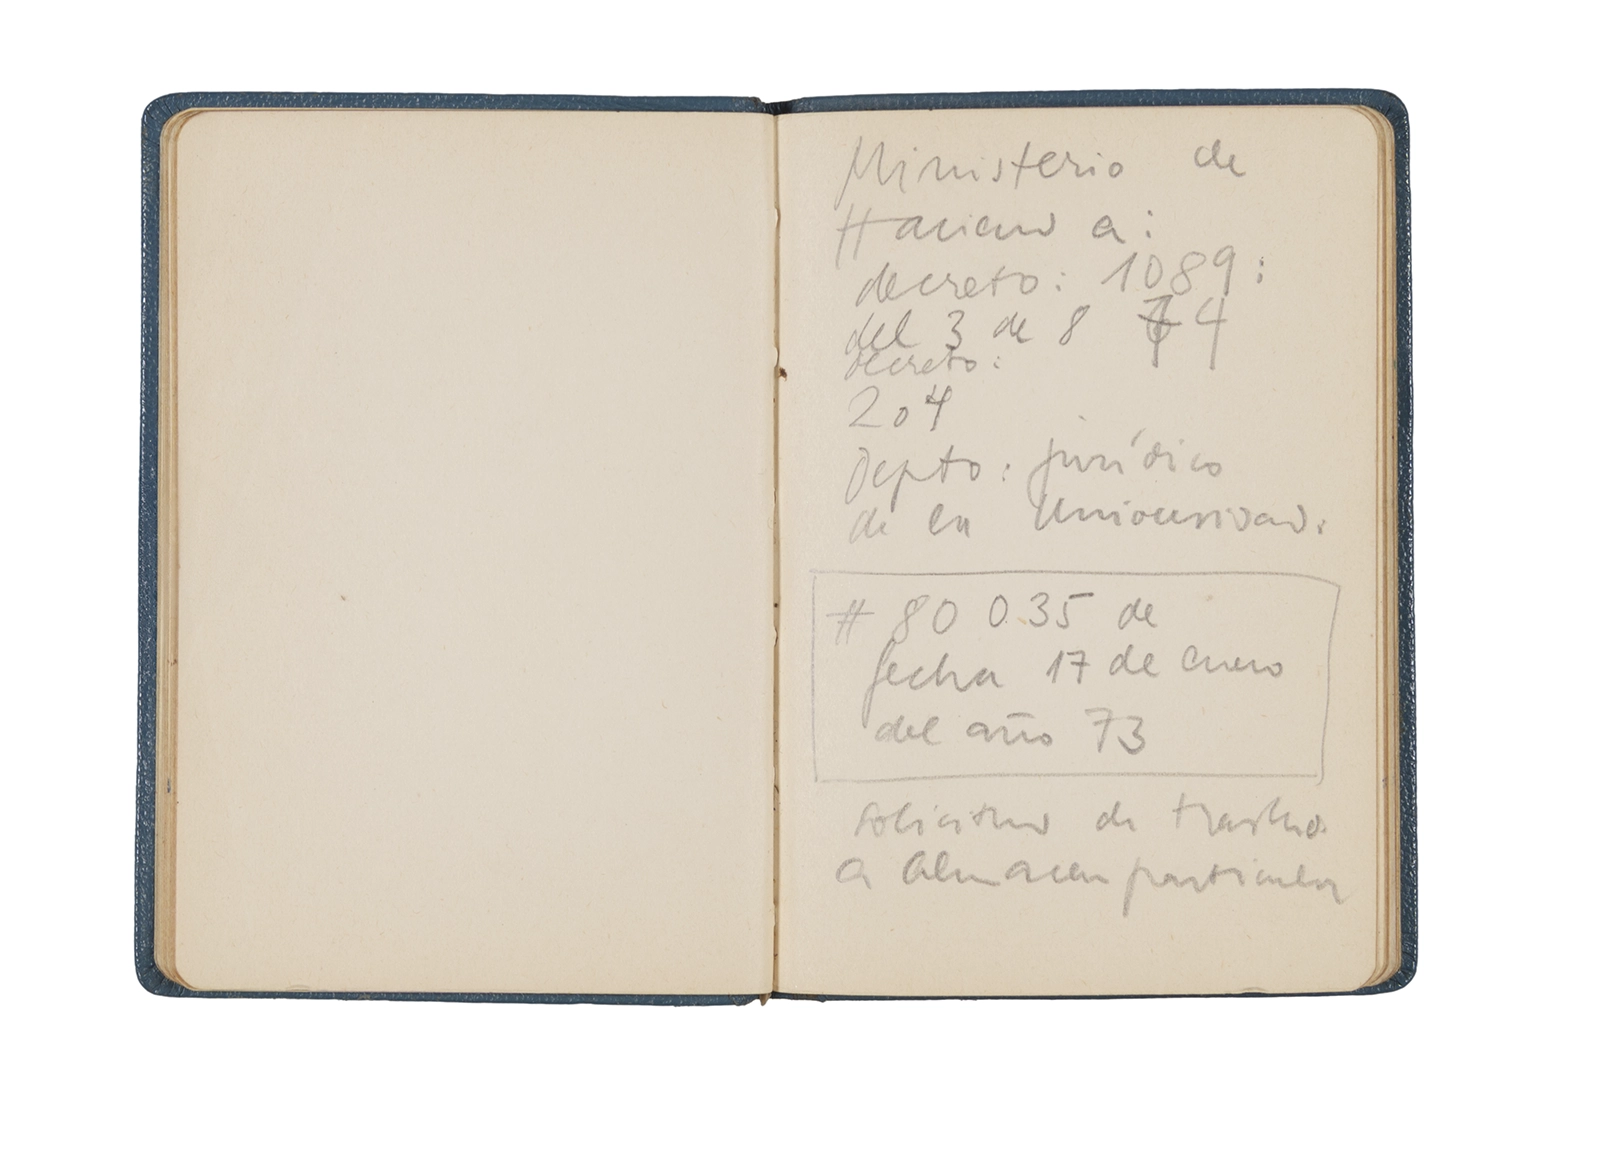 Ministerio de
Hacienda:
decreto: 1089:
del 3 de 8 74
decreto:
204
Depto: jurídico
de la Universidad.
# 80 035 de
fecha 17 de enero
del año 73
solicitud de traslado
a almacen particular